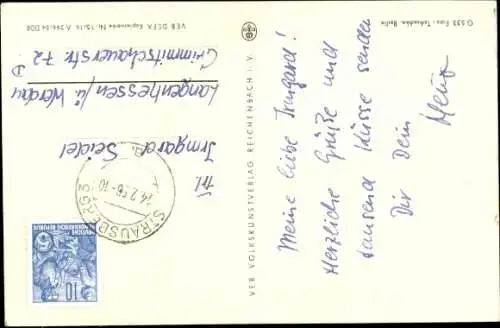 Meine liebe Irmgard!
Herzliche Grüße und
tausend Küsse senden
Dir Dein
Heinz
Frl.
Irmgard Seidel
Langenhessen /ü Werdau
Crimmitschauerstr. 72
D
STRAUSBERG
14.2.56-10
DEUTSCHE
DEMOKRATISCHE REPUBLIK
10
VEB VOLKSKUNSTVERLAG REICHENBACH i. V.
VEB DEFA Kopierwerke
G 533 Foto: Berlin